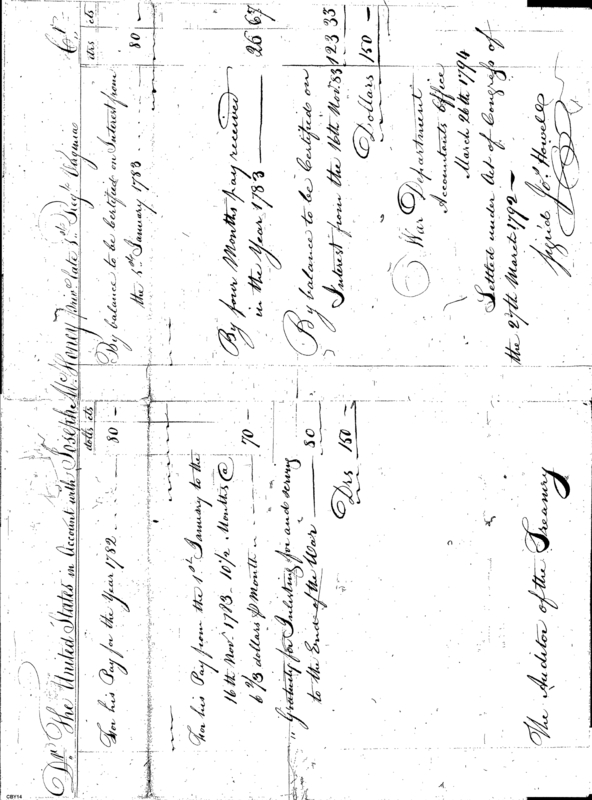 Dr. The United States in Account with Joseph McHenry Priv. late 5th Regt. Virginia Cr.
dolls cts
For his Pay for the Year 1782 80 —
For his Pay from the 1st January to the
16th Nov. 1783 - 10 1/2 Months @
6 2/3 dollars P Month 70 —
" Gratuity for Inlisting for and serving
to the End of the War 80
Drs 150 —
The Auditor of the Treasury
dlrs cts
By balance to be Certified on Interest from
the 5th January 1783 80 —
By four Months pay received
in the Year 1783 26 67
By balance to be Certified on
Interest from the 16th Nov. 83 123 33
Dollars 150 —
War Department
Accountants Office
March 26th 1794
Settled under Act of Congress of
the 27th March 1792 —
Jos. Howell
CBY14